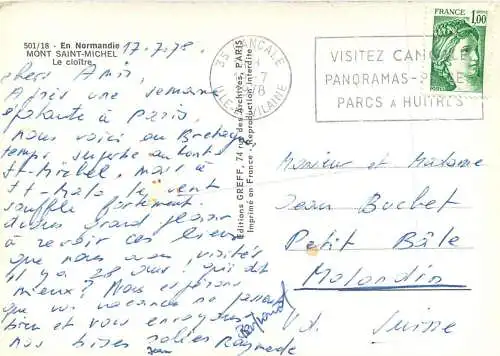 501/18 - En Normandie
MONT SAINT-MICHEL
Le cloître
17.7.78.
Chers Amis,
Après une semaine
épatante à Paris,
nous voici en Bretagne
temps superbe au Mont
St-Michel, mais à
St-Malo le vent
souffle fortement.
grand plaisir
à revoir ces lieux
que nous avons visités
il y a 28 ans! qui dit
mieux? Nous espérons
que vos vacances se passent
bien et vous envoyons
nos bises
Raymonde
Jean
Editions GREFF, 74 rue des Archives, PARIS
Imprimé en France - Reproduction Interdite
35 CANCALE
78
ILLE-ET-VILAINE
VISITEZ CANCALE
PANORAMAS
PARCS A HUITRES
FRANCE
1,00
Monsieur et Madame
Jean Buchet
Petit Bâle
Molondin
Vd. Suisse